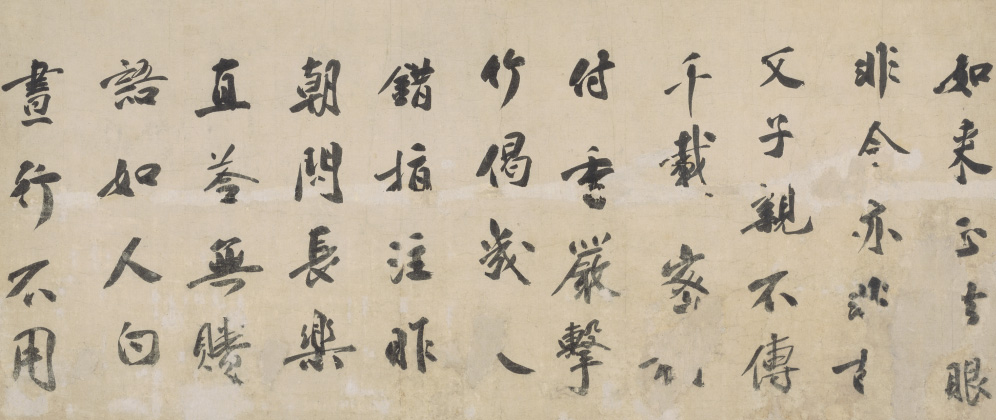 如来正法眼
非今亦非古
父子親不傳
千載密相
付香嚴擊
竹偈幾人
錯指注昨
朝聞長樂
直答無賸
語如人白
晝行不用